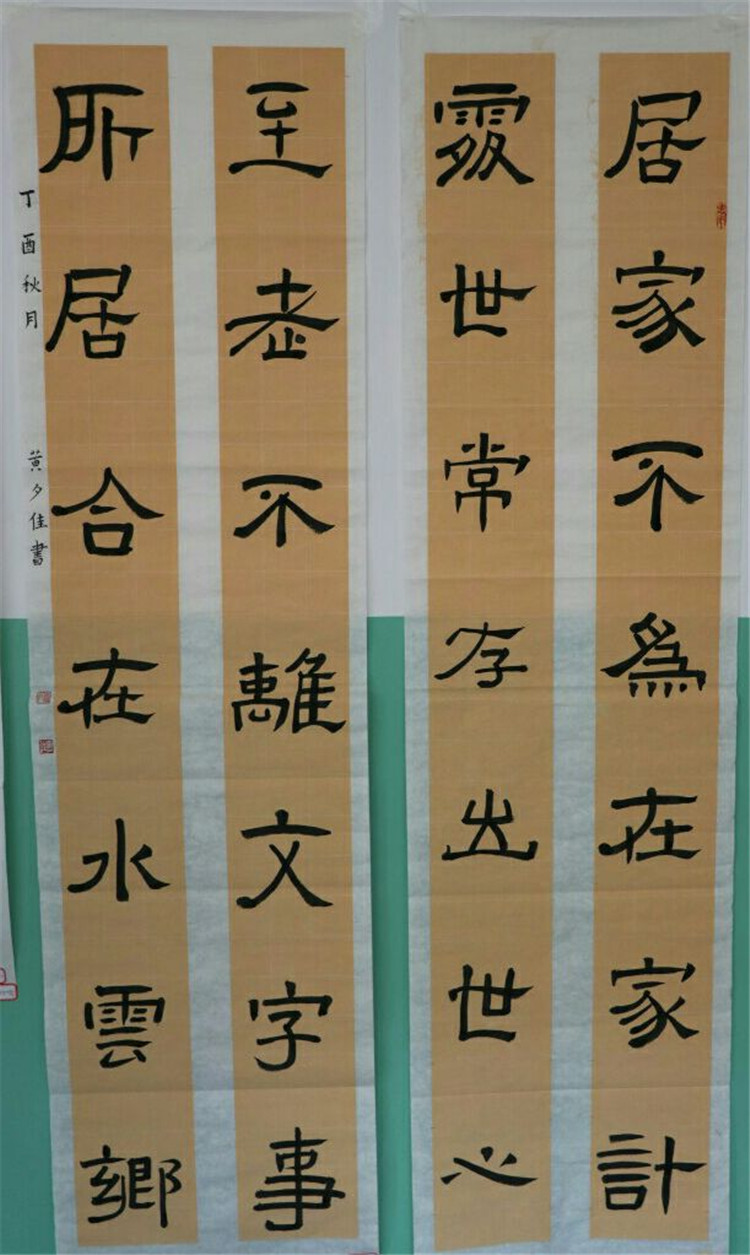 居家不爲在家計
處世常存出世心
至老不離文字事
所居合在水雲鄉
丁酉秋月
黄夕佳書